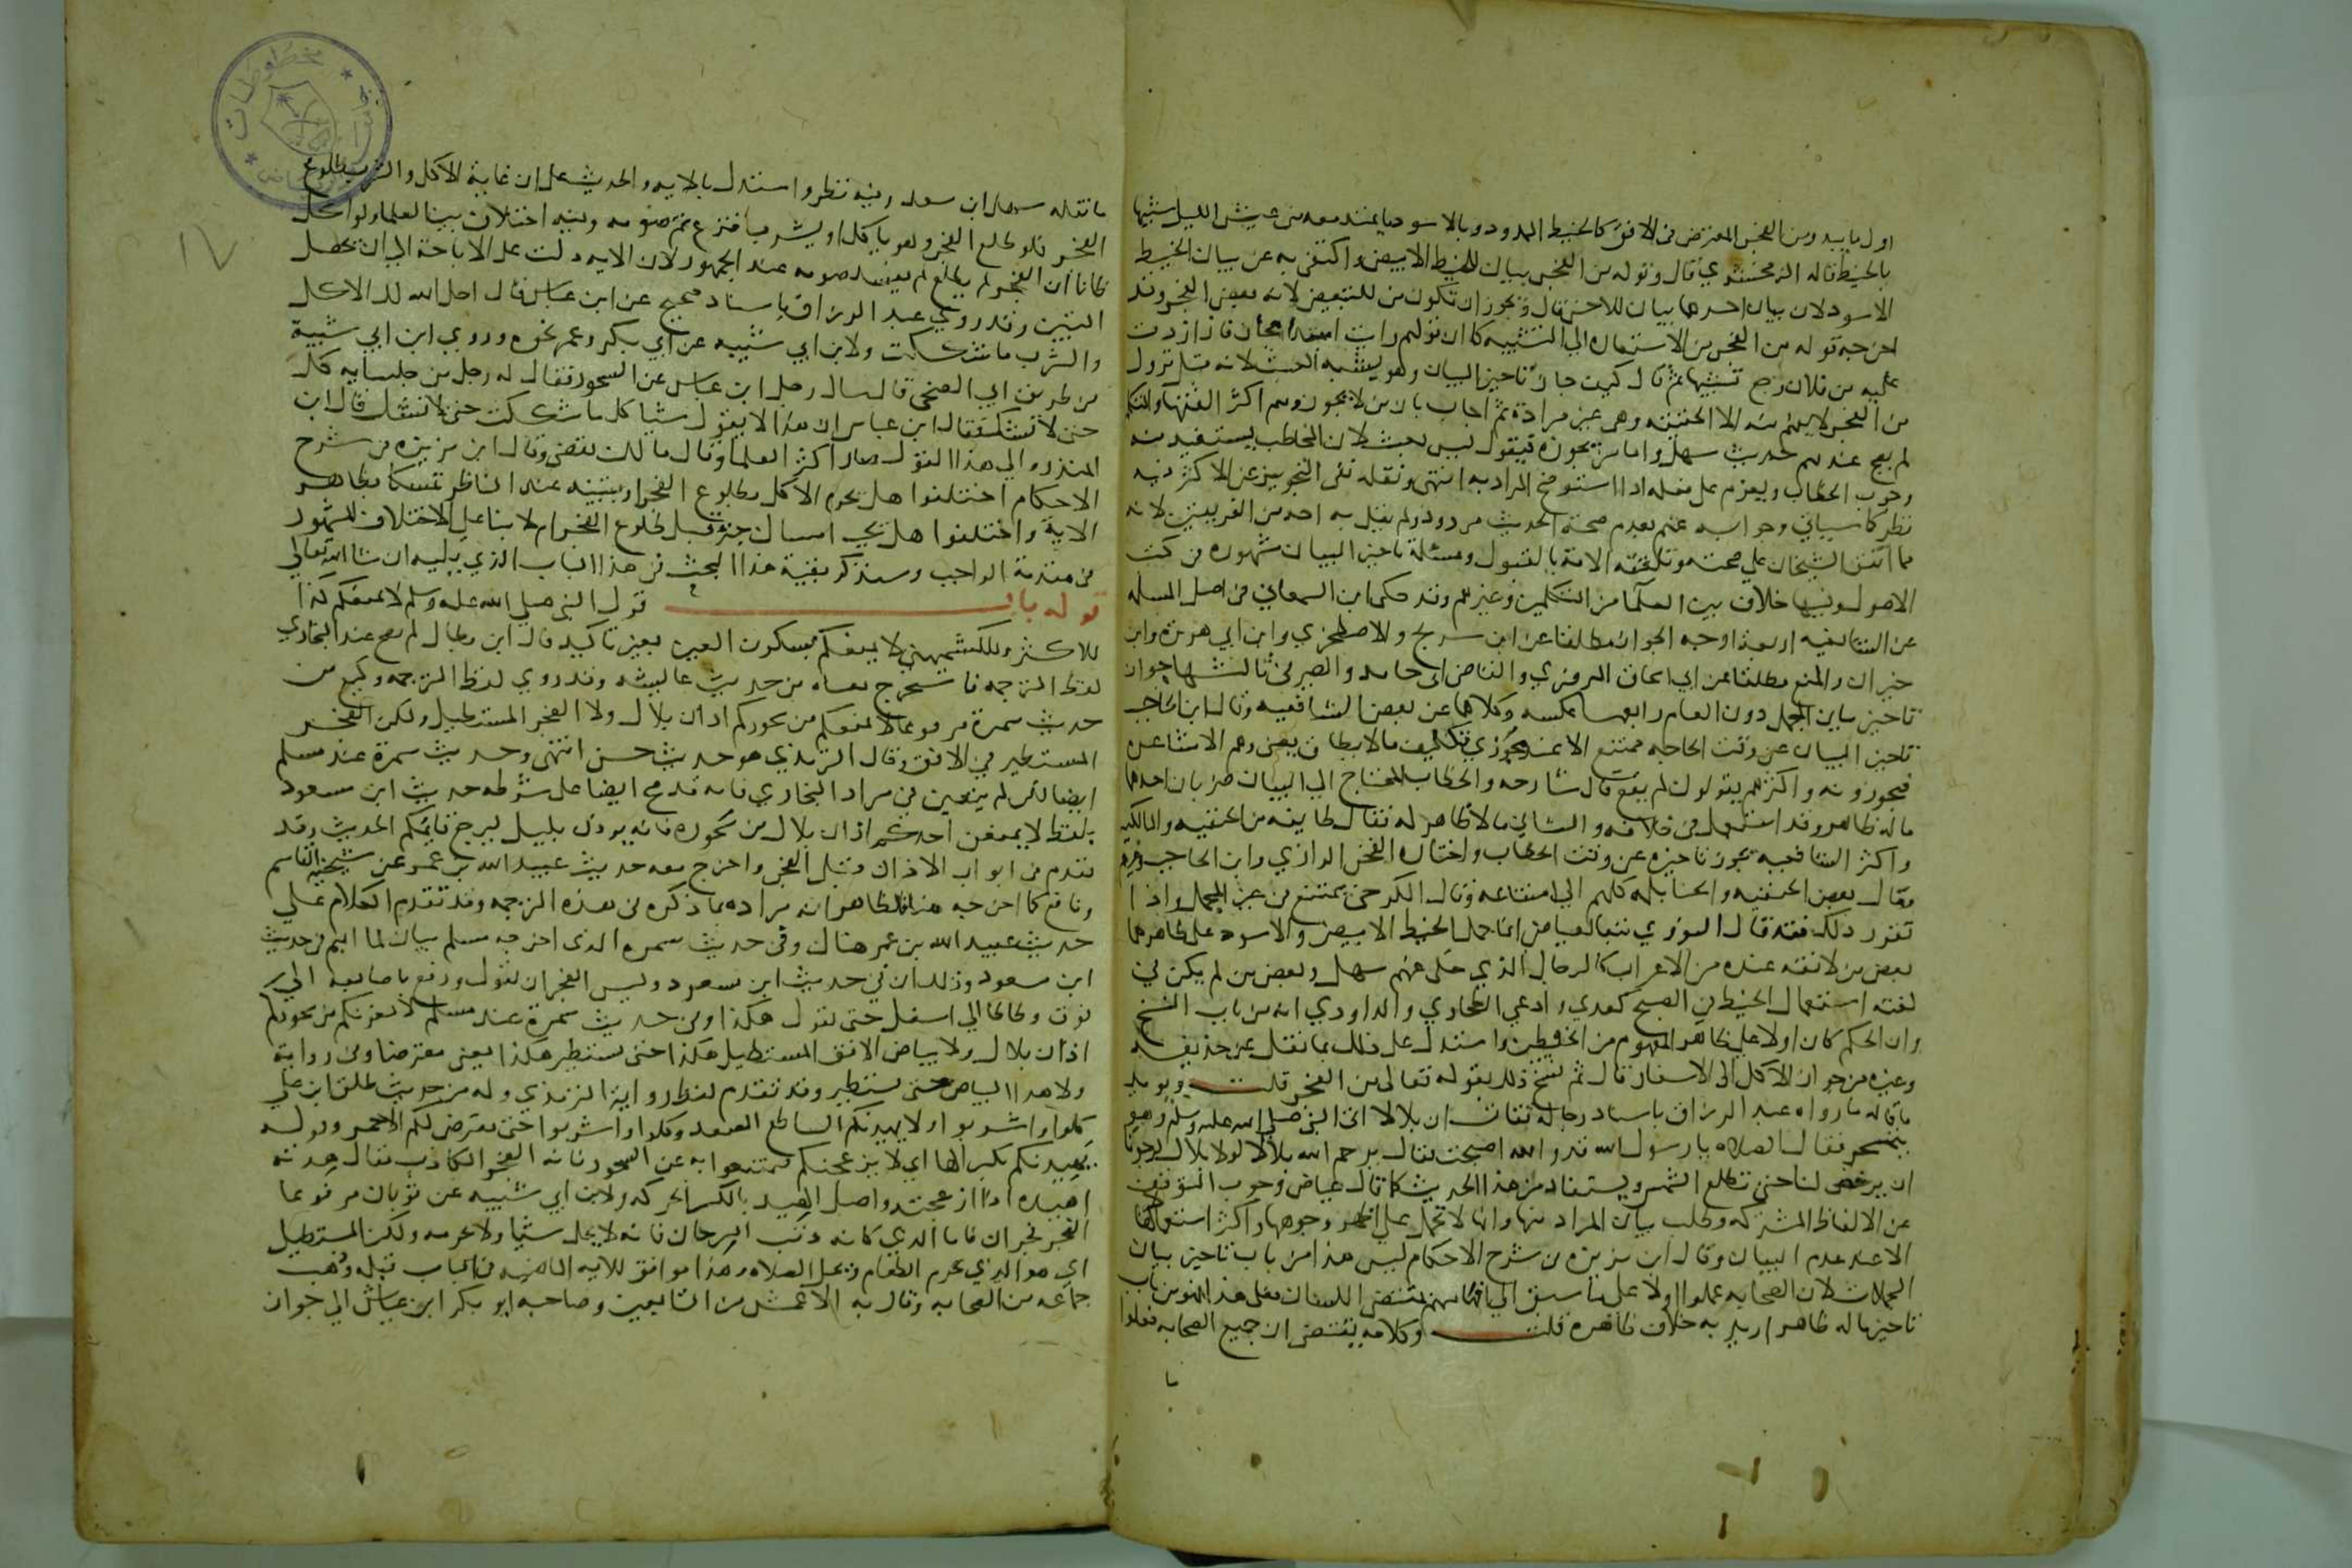 اول ما يبدو من الفجر المعترض في الافق كالخيط الممدود وبالاسود ما يمتد معه من غبش الليل شبيها
بالخيط قاله الزمخشري قال وقوله من الفجر بيان للخيط الابيض واكتفي به عن بيان الخيط
الاسود لان بيان احدهما بيان للاخر قال ويجوز ان تكون من للتبعيض لانه بعض الفجر وقد
اخرجه قوله من الفجر من الاستعاره الي التشبيه كما ان قولهم رايت اسدا مجاز فاذا زدت
عليه من فلان رجع تشبيها ثم قال كيف جاز تاخير البيان وهو يشبه العبث لانه قبل نزول
من الفجر لا يفهم منه الا الحقيقه وهي غير مرادة ثم اجاب بان من لا يجوزه وهم اكثر الفقها والمتكلمين
لم يصح عندهم حديث سهل واما من يجوزه فيقول ليس بعبث لان المخاطب يستفيد منه
وجوب الخطاب ويعزم علي فعله اذا استوضح المراد به انتهي ونقله نفي التجويز عن الاكثر فيه
نظر كما سياتي وجوابه عنهم بعدم صحة الحديث مردود ولم يقل به احد من الفريقين لانه
مما اتفق الشيخان علي صحته وتلقته الامة بالقبول ومسئلة تاخير البيان شهوره في كتب
الاصول وفيها خلاف بين العلما من المتكلمين وغيرهم وقد حكي ابن السمعاني في اصل المسله
عن الشافعيه اربعة اوجه الجواز مطلقا عن ابن سريج والاصطخري وابن ابي هريره وابن
خيران والمنع مطلقا عن ابي اسحاق المروزي والقاضي ابي حامد والصيرفي ثالثها جواز
تاخير بيان المجمل دون العام رابعها عكسه وكلاهما عن بعض الشافعيه وقال ابن الحاجب
تاخير البيان عن وقت الحاجه ممتنع الا عند مجوزي تكليف ما لا يطاق يعني وهم الاشاعره
فيجوزونه واكثرهم يقولون لم يقع قال شارحه والخطاب المحتاج الي البيان ضربان احدهما
ما له ظاهر وقد استعمل في خلافه والثاني ما لا ظاهر له فقال طايفه من الحنفيه والمالكيه
واكثر الشافعيه يجوز تاخيره عن وقت الخطاب واختاره الفخر الرازي وابن الحاجب وغيرهم
وقال بعض الحنفيه والحنابله كلهم الي امتناعه وقال الكرخي يمتنع في غير المجمل واذا
تقرر ذلك فقد قال النووي تبعا لعياض انما حمل الخيط الابيض والاسود علي ظاهرهما
بعض من لا فقه عنده من الاعراب كالرجال الذي حكي عنهم سهل وبعض من لم يكن في
لغته استعمال الخيط في الصبح كعدي وادعي الطحاوي والداودي انه من باب النسخ
وان الحكم كان اولا علي ظاهر المفهوم من الخيطين واستدل علي ذلك بما نقل عن حذيفه
وغيره من جواز الاكل الي الاسفار قال ثم نسخ ذلك بقوله تعالي من الفجر قلت ويويد
ما قاله ما رواه عبد الرزاق باسناد رجاله ثقات ان بلالا اتي النبي صلي الله عليه وسلم وهو
يتسحر فقال الصلاه يا رسول الله قد والله اصبحت فقال يرحم الله بلالا لولا بلال لرجونا
ان يرخص لنا حتي تطلع الشمس ويستفاد من هذا الحديث كما قال عياض وجوب التوقف
عن الالفاظ المشتركه وطلب بيان المراد منها وانها لا تحمل علي اظهر وجوهها واكثر استعمالها
الا عند عدم البيان وقال ابن بزيزه في شرح الاحكام ليس هذا من باب تاخير بيان
المجملات لان الصحابه عملوا اولا علي ما سبق الي افهامهم بمقتضي اللسان فعلي هذا فهو من باب
تاخير ما له ظاهر اريد به خلاف ظاهره قلت وكلامه يقتضي ان جميع الصحابه فعلوا
ما
ما نقله سهل ابن سعد وفيه نظر واستدل بالايه والحديث علي ان غاية الاكل والشرب طلوع
الفجر فلو طلع الفجر وهو ياكل او يشرب فنزع تم صومه وفيه اختلاف بين العلما ولو اكل
ظانا ان الفجر لم يطلع لم يفسد صومه عند الجمهور لان الايه دلت علي الاباحة الي ان يحصل
التبيين وقد روي عبد الرزاق باسناد صحيح عن ابن عباس قال احل الله لك الاكل
والشرب ما شككت ولابن ابي شيبه عن ابي بكر وعمر نحوه وروي ابن ابي شيبة
من طريق ابي الضحي قال سال رجل ابن عباس عن السحور فقال له رجل من جلسايه كل
حتي لا تشك فقال ابن عباس ان هذا لا يقول شيا كل ما شككت حتي لا تشك قال ابن
المنذر والي هذا القول صار اكثر العلما وقال مالك يقضي وقال ابن بزيزه في شرح
الاحكام اختلفوا هل يحرم الاكل بطلوع الفجر او بتبينه عند الناظر تمسكا بظاهر
الاية واختلفوا هل يجب امساك جزء قبل طلوع الفجر ام لا بنا علي الاختلاف المشهور
في مقدمة الواجب وسنذكر بقية هذا البحث في هذا الباب الذي يليه ان شا الله تعالي
قوله باب قول النبي صلي الله عليه وسلم لا يمنعكم كذا
للاكثر وللكشميهني لا يمنعكم بسكون العين بغير تاكيد قال ابن بطال لم يصح عند البخاري
لفظ الترجمه فاستخرج معناه من حديث عائشه وقد روي لفظ الترجمه وكيع من
حديث سمرة مرفوعا لا يمنعكم من سحوركم اذان بلال ولا الفجر المستطيل ولكن الفجر
المستطير في الافق وقال الترمذي هو حديث حسن انتهي وحديث سمرة عند مسلم
ايضا لكن لم يتعين في مراد البخاري فانه قد صح ايضا علي شرطه حديث ابن مسعود
بلفظ لا يمنعن احدكم اذان بلال من سحوره فانه يوذن بليل ليرجع قايمكم الحديث وقد
تقدم في ابواب الاذان قبل الفجر واخرج معه حديث عبيد الله بن عمر عن شيخيه القاسم
ونافع كما اخرجه هنا فالظاهر انه مراده بما ذكره في هذه الترجمه وقد تقدم الكلام علي
حديث عبيد الله بن عمر هناك وفي حديث سمره الذي اخرجه مسلم بيان لما ابهم في حديث
ابن مسعود وذلك ان في حديث ابن مسعود وليس الفجر ان يقول ورفع باصابعه الي
فوق وطاطا الي اسفل حتي يقول هكذا وفي حديث سمرة عند مسلم لا يغرنكم من سحوركم
اذان بلال ولا بياض الافق المستطيل هكذا حتي يستطير هكذا يعني معترضا وفي رواية
ولا هذا البياض حتي يستطير وقد تقدم لفظ رواية الترمذي وله من حديث طلق ابن علي
كلوا واشربوا ولا يهيدنكم الساطع المصعد وكلوا واشربوا حتي يعترض لكم الاحمر وقوله
يهيدنكم بكسر الها اي لا يزعجنكم فتمتنعوا به عن السحور فانه الفجر الكاذب يقال هدته
اهيده اذا ازعجته واصل الهيد بالكسر الحركه ولابن ابي شيبه عن ثوبان مرفوعا
الفجر فجران فاما الذي كانه ذنب السرحان فانه لا يحل شيا ولا يحرمه ولكن المستطيل
اي هو الذي يحرم الطعام ويحل الصلاه وهذا موافق للايه الماضيه في الباب قبله وذهب
جماعه من الصحابه وقال به الاعمش من التابعين وصاحبه ابو بكر ابن عياش الي جواز
١٧
مخطوطات